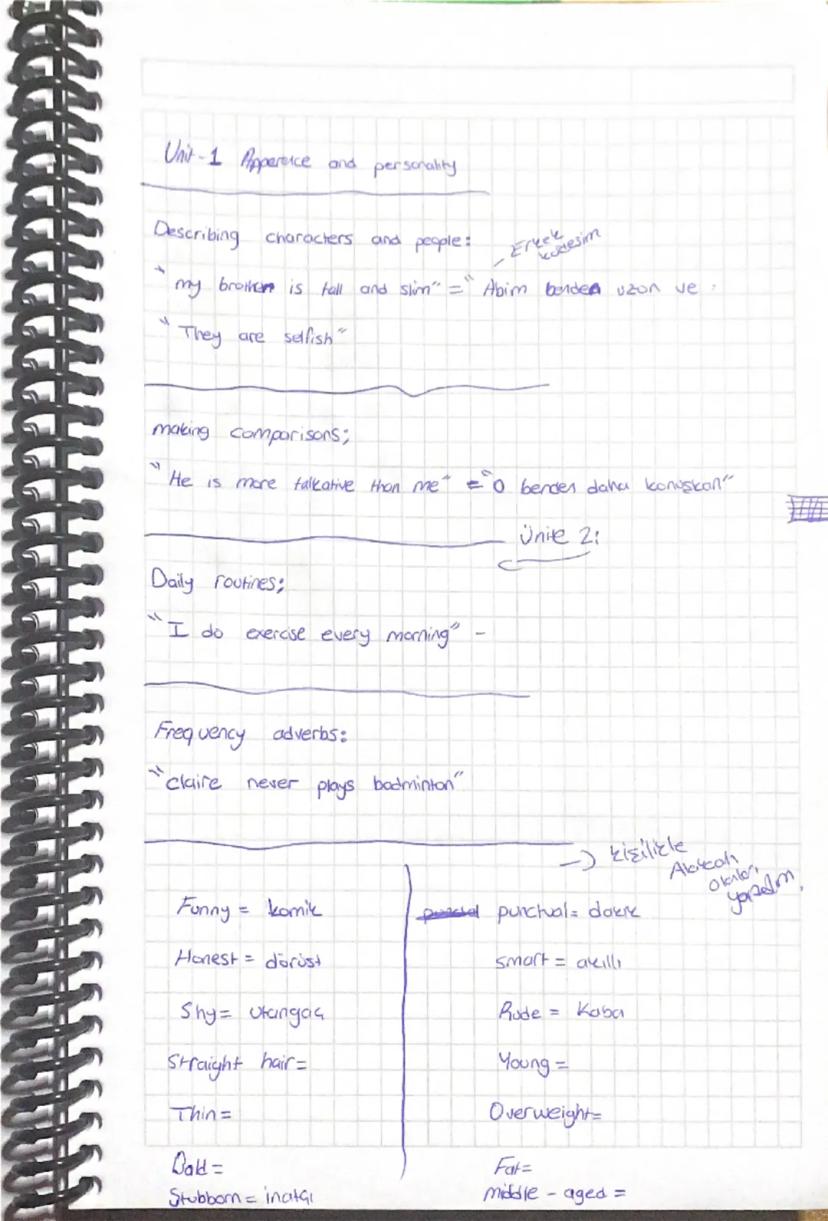 Unit-1 Apperance and personality
Describing characters and people:
Erkek
kardesim
"my brother is tall and slim" = "Abim benden uzun ve
"They are selfish"
making comparisons;
"He is more talkative than me" = "O benden daha konuşkan"
Ünite 2:
Daily routines;
"I do exercise every morning" -
Frequency adverbs:
"claire never plays badminton"
→ kişilikle
Alakalı
olanları
yazdım.
Funny = komik
Honest = dürüst
Shy = utangaç
Straight hair =
Thin =
Bald =
Stubborn = inatçı
punctual = dakik
smart = akıllı
Rude = Kaba
Young =
Overweight=
Fat=
middle - aged =